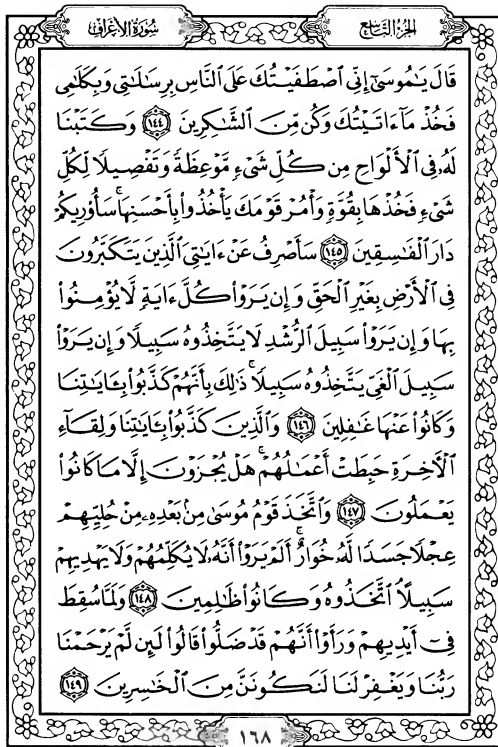 الجزء التاسع
سورة الأعراف
قَالَ يَٰمُوسَىٰٓ إِنِّى ٱصْطَفَيْتُكَ عَلَى ٱلنَّاسِ بِرِسَٰلَٰتِى وَبِكَلَٰمِى
فَخُذْ مَآ ءَاتَيْتُكَ وَكُن مِّنَ ٱلشَّٰكِرِينَ ١٤٤ وَكَتَبْنَا
لَهُۥ فِى ٱلْأَلْوَاحِ مِن كُلِّ شَىْءٍ مَّوْعِظَةً وَتَفْصِيلًا لِّكُلِّ
شَىْءٍ فَخُذْهَا بِقُوَّةٍ وَأْمُرْ قَوْمَكَ يَأْخُذُوا۟ بِأَحْسَنِهَا ۚ سَأُو۟رِيكُمْ
دَارَ ٱلْفَٰسِقِينَ ١٤٥ سَأَصْرِفُ عَنْ ءَايَٰتِىَ ٱلَّذِينَ يَتَكَبَّرُونَ
فِى ٱلْأَرْضِ بِغَيْرِ ٱلْحَقِّ وَإِن يَرَوْا۟ كُلَّ ءَايَةٍ لَّا يُؤْمِنُوا۟
بِهَا وَإِن يَرَوْا۟ سَبِيلَ ٱلرُّشْدِ لَا يَتَّخِذُوهُ سَبِيلًا وَإِن يَرَوْا۟
سَبِيلَ ٱلْغَىِّ يَتَّخِذُوهُ سَبِيلًا ۚ ذَٰلِكَ بِأَنَّهُمْ كَذَّبُوا۟ بِـَٔايَٰتِنَا
وَكَانُوا۟ عَنْهَا غَٰفِلِينَ ١٤٦ وَٱلَّذِينَ كَذَّبُوا۟ بِـَٔايَٰتِنَا وَلِقَآءِ
ٱلْءَاخِرَةِ حَبِطَتْ أَعْمَٰلُهُمْ ۚ هَلْ يُجْزَوْنَ إِلَّا مَا كَانُوا۟
يَعْمَلُونَ ١٤٧ وَٱتَّخَذَ قَوْمُ مُوسَىٰ مِنۢ بَعْدِهِۦ مِنْ حُلِيِّهِمْ
عِجْلًا جَسَدًا لَّهُۥ خُوَارٌ ۚ أَلَمْ يَرَوْا۟ أَنَّهُۥ لَا يُكَلِّمُهُمْ وَلَا يَهْدِيهِمْ
سَبِيلًا ۘ ٱتَّخَذُوهُ وَكَانُوا۟ ظَٰلِمِينَ ١٤٨ وَلَمَّا سُقِطَ
فِىٓ أَيْدِيهِمْ وَرَأَوْا۟ أَنَّهُمْ قَدْ ضَلُّوا۟ قَالُوا۟ لَئِن لَّمْ يَرْحَمْنَا
رَبُّنَا وَيَغْفِرْ لَنَا لَنَكُونَنَّ مِنَ ٱلْخَٰسِرِينَ ١٤٩
١٦٨